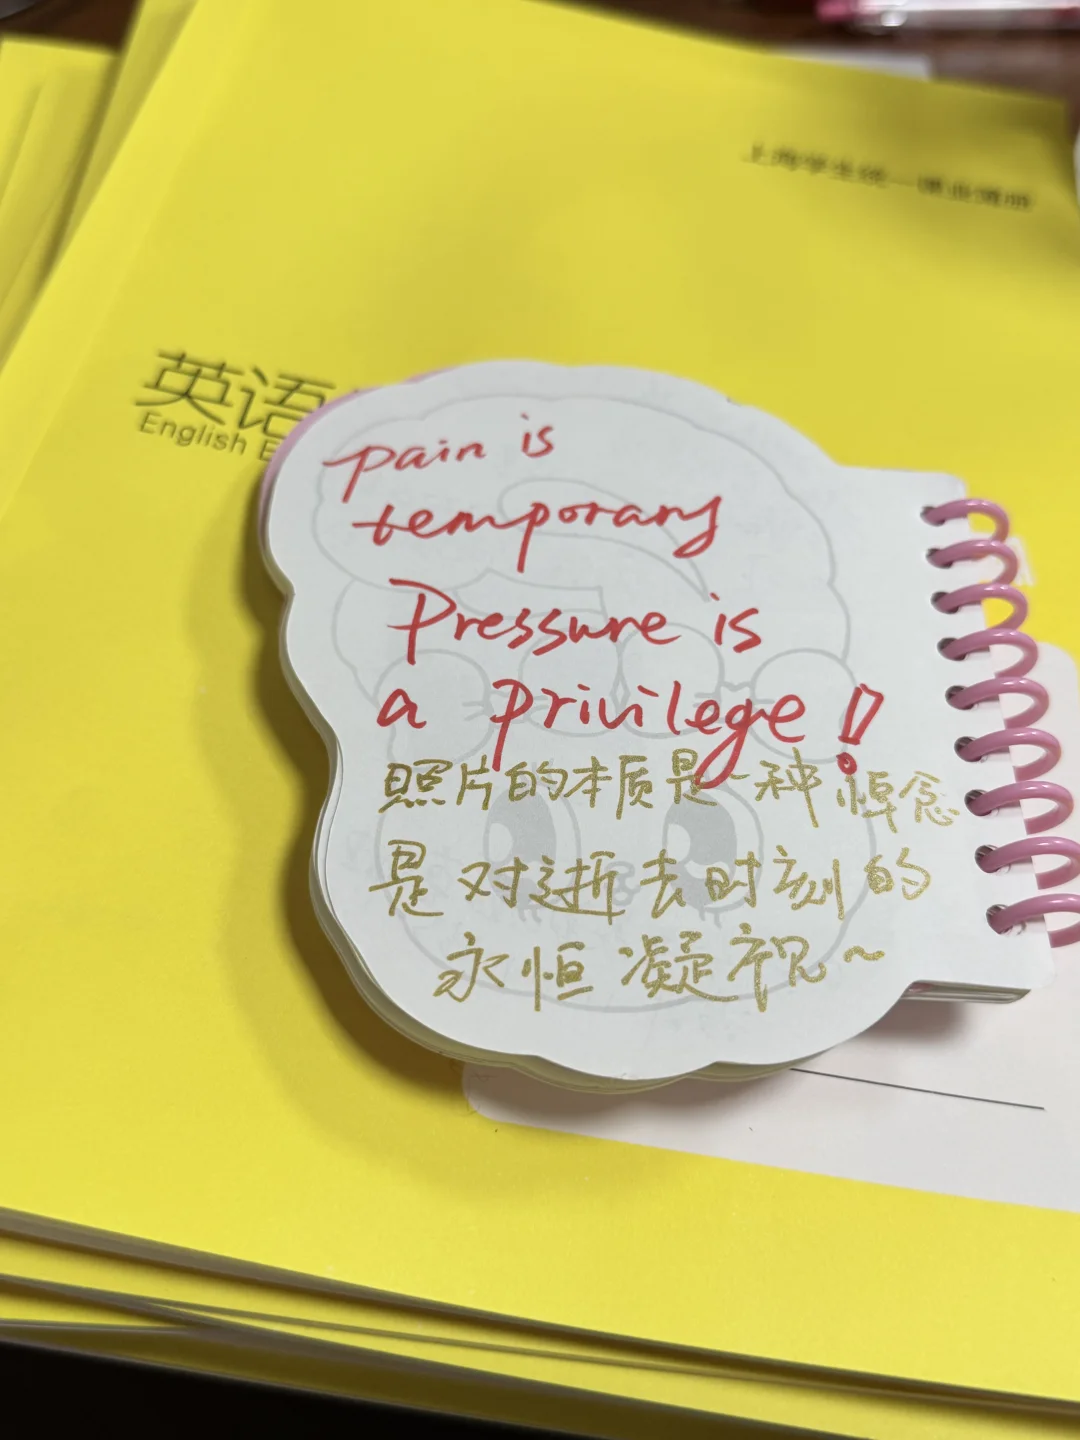 上海学生统一课业簿册
英语
English E
pain is
temporary
Pressure is
a privilege!
照片的本质是一种悼念
是对逝去时刻的
永恒凝视~